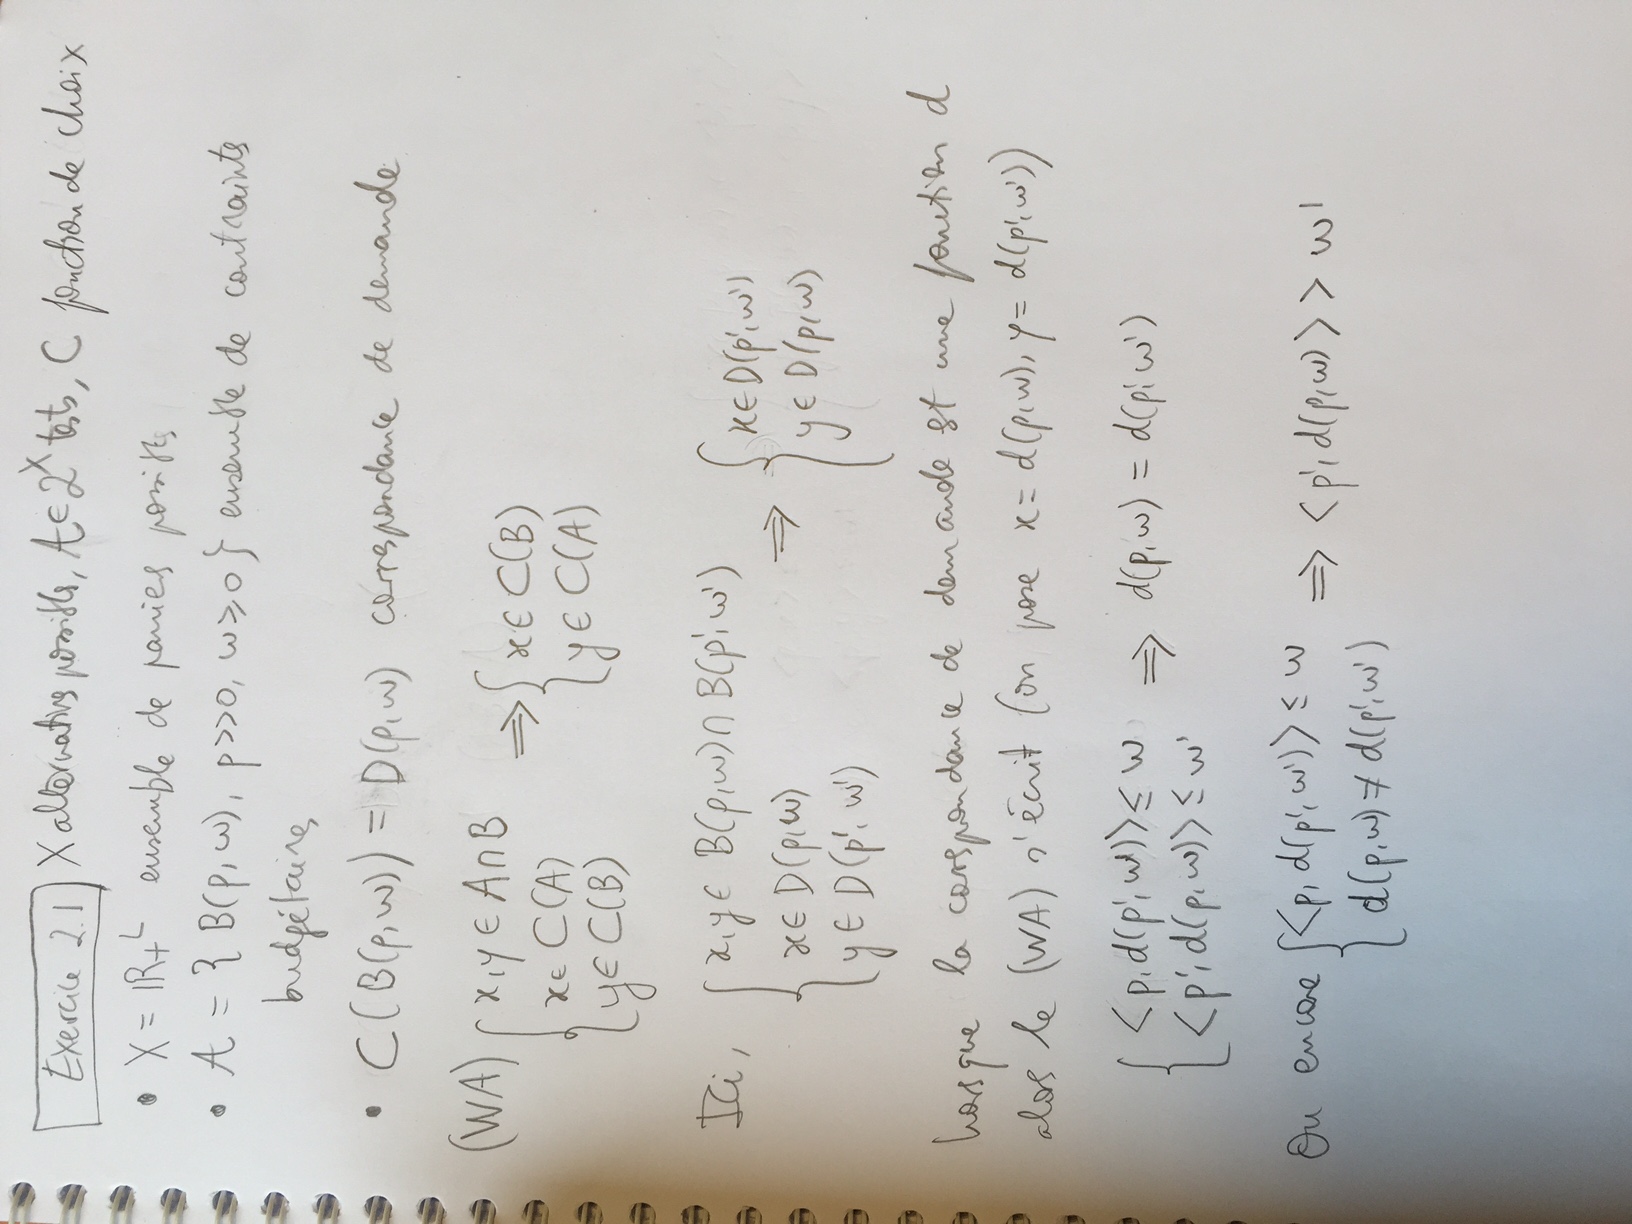 Exercice 2.1 X alternatives possibles, A ∈ 2^X tests, C fonction de choix
• X = IR+^L ensemble de paniers possibles
• A = { B(p,w), p>>0, w≥0 } ensemble de contraints
budgétaires
• C(B(p,w)) = D(p,w) correspondance de demande
(WA) { x,y ∈ A∩B
x ∈ C(A)
y ∈ C(B)
⇒ { x ∈ C(B)
y ∈ C(A)
Ici, { x,y ∈ B(p,w) ∩ B(p',w')
x ∈ D(p,w)
y ∈ D(p',w')
⇒ { x ∈ D(p',w')
y ∈ D(p,w)
Lorsque la correspondance de demande est une fonction d
alors le (WA) s'écrit (on pose x = d(p,w), y = d(p',w'))
{ <p,d(p',w')> ≤ w ⇒ d(p,w) = d(p',w')
<p',d(p,w)> ≤ w'
Ou encore { <p, d(p',w')> ≤ w ⇒ <p',d(p,w)> > w'
d(p,w) ≠ d(p',w')